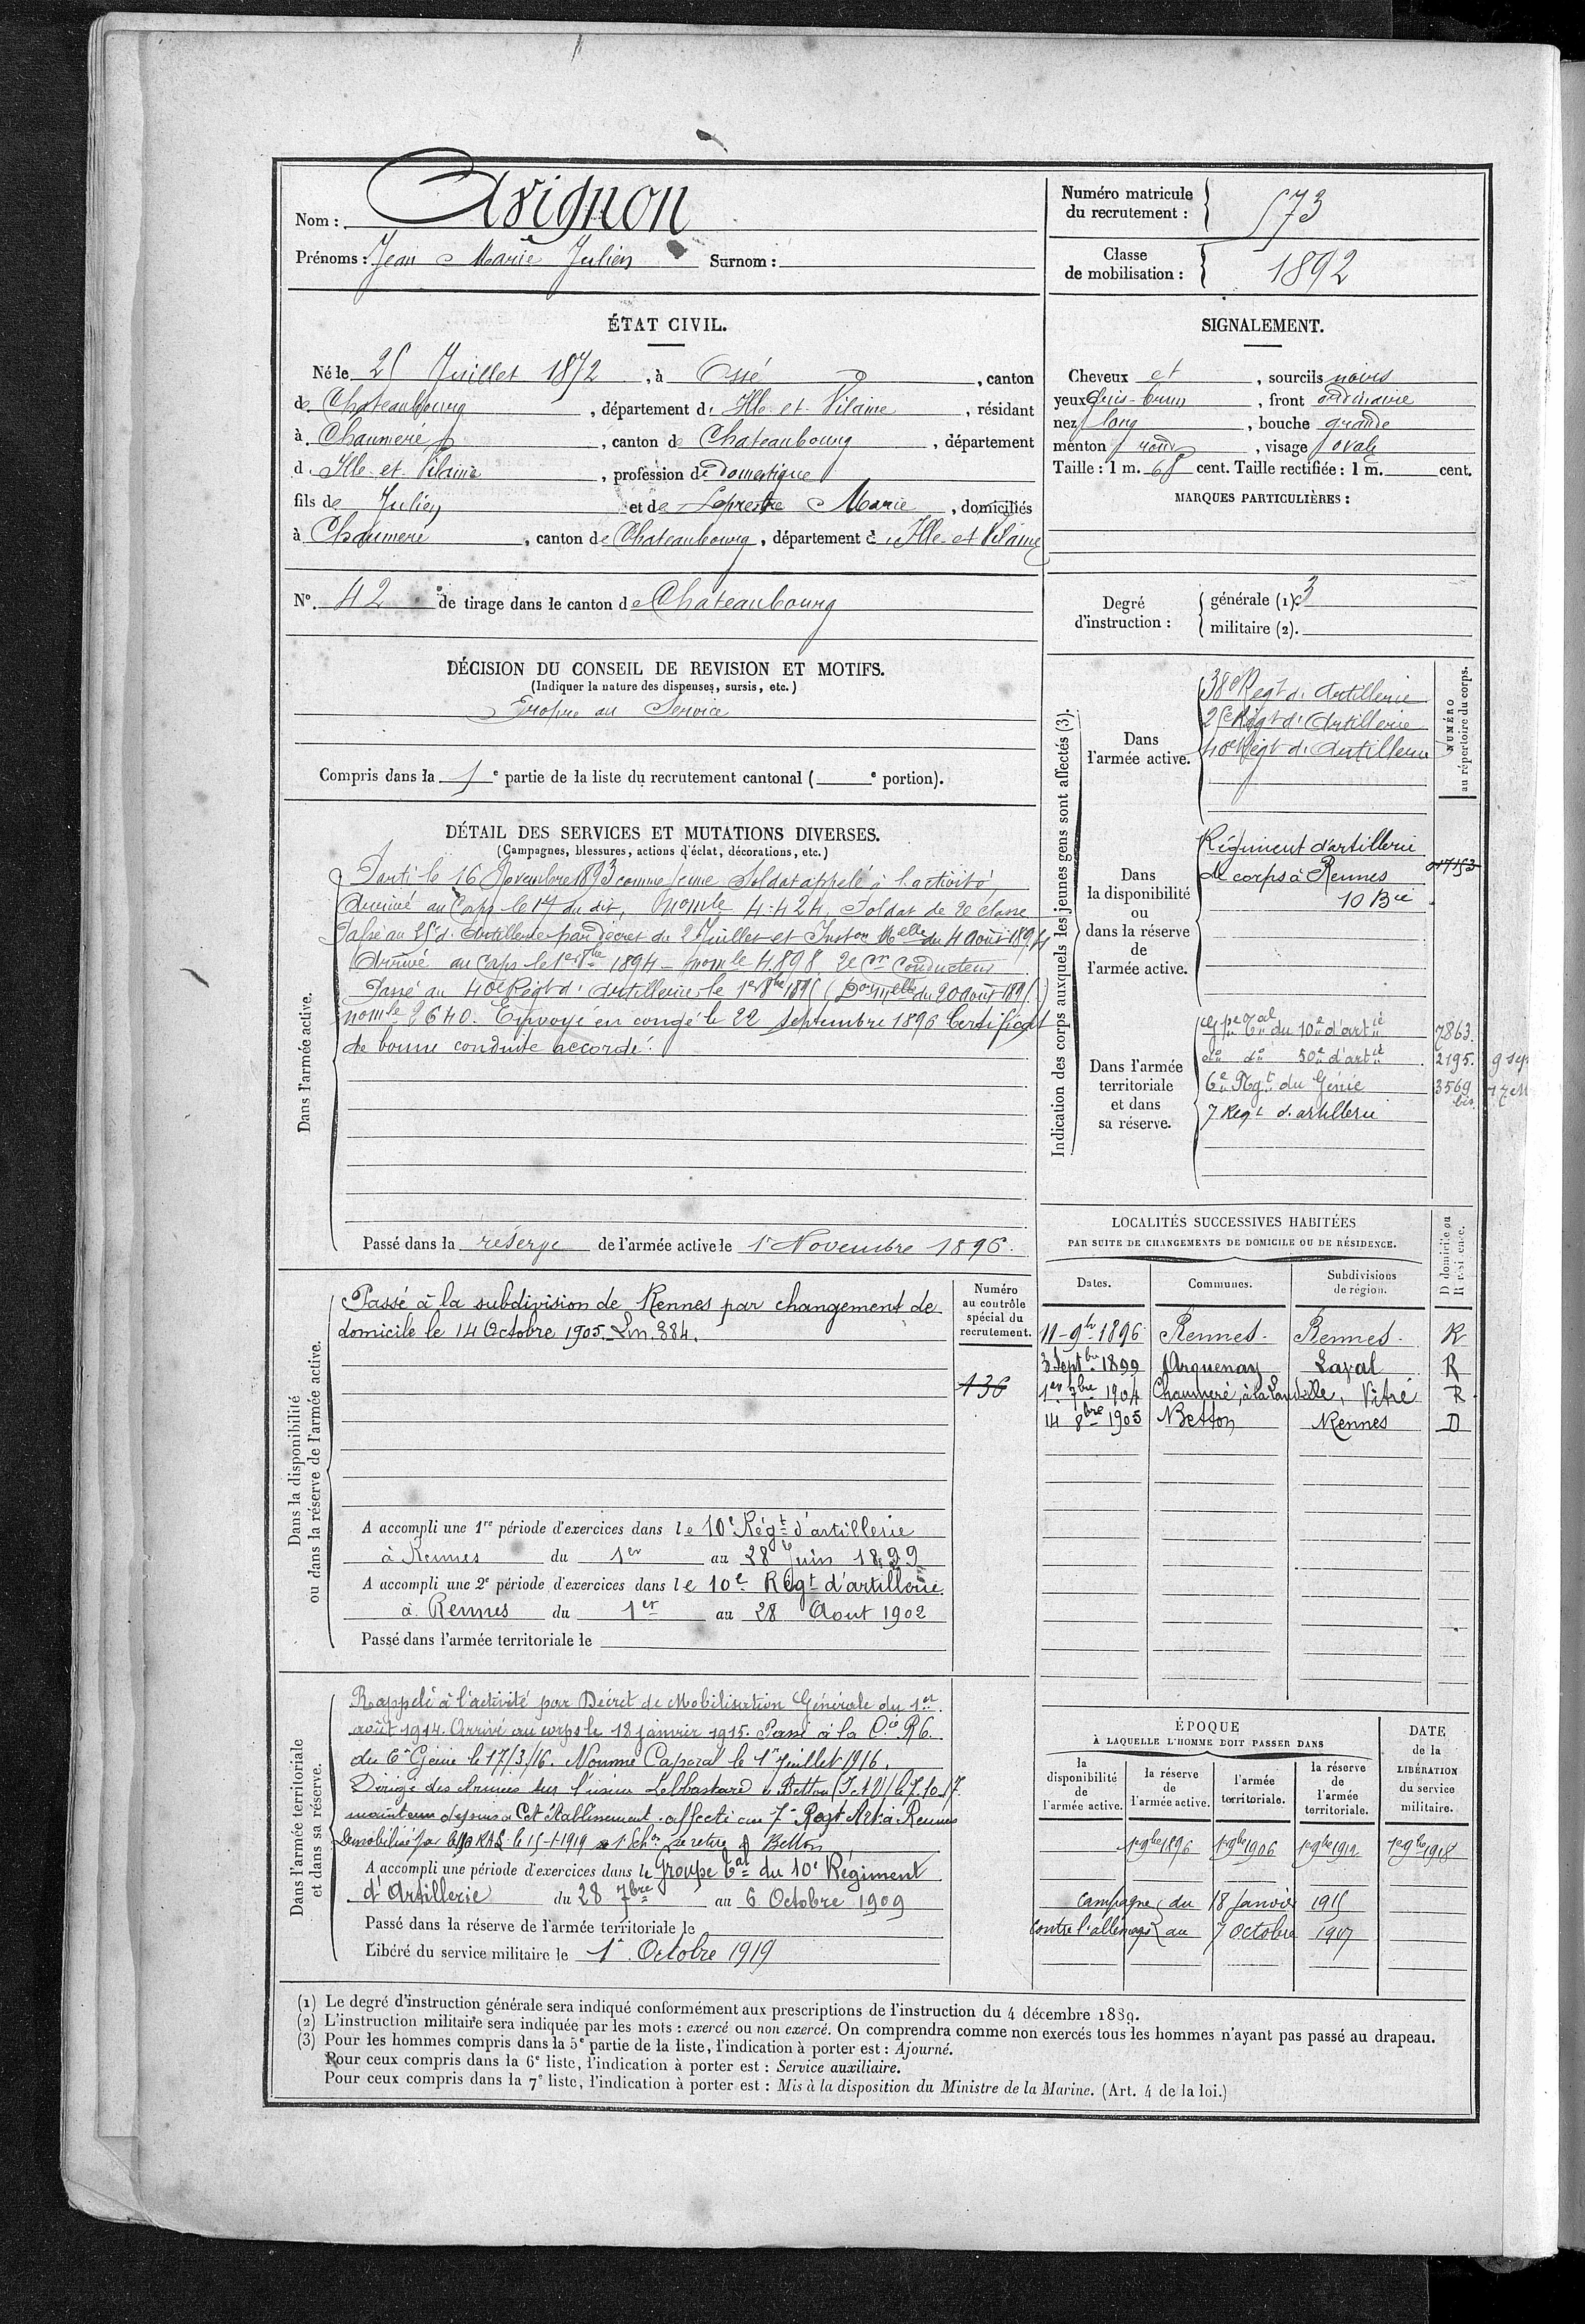 Nom : Avignon
Prénoms : Jean Marie Julien Surnom :
Numéro matricule du recrutement : 573
Classe de mobilisation : 1892
ÉTAT CIVIL.
Né le 25 Juillet 1872, à Ossé, canton
de Chateaubourg, département d'Ille et Vilaine, résidant
à Chaumeré, canton de Chateaubourg, département
d'Ille et Vilaine, profession de domestique
fils de Julien et de Leprestre Marie, domiciliés
à Chaumeré, canton de Chateaubourg, département d'Ille et Vilaine
SIGNALEMENT.
Cheveux et, sourcils noirs
yeux Gris-brun, front ordinaire
nez long, bouche grande
menton rond, visage ovale
Taille : 1 m. 65 cent. Taille rectifiée : 1 m. cent.
MARQUES PARTICULIÈRES :
N°. 42 de tirage dans le canton de Chateaubourg
Degré d'instruction : générale (1). 3
militaire (2).
DÉCISION DU CONSEIL DE REVISION ET MOTIFS.
(Indiquer la nature des dispenses, sursis, etc.)
Propre au Service
Compris dans la 1e partie de la liste du recrutement cantonal ( e portion).
DÉTAIL DES SERVICES ET MUTATIONS DIVERSES.
(Campagnes, blessures, actions d'éclat, décorations, etc.)
Dans l'armée active.
Parti le 16 Novembre 1893 comme jeune Soldat appelé à l'activité,
Arrivé au Corps le 17 du dit, no mle 4424, Soldat de 2e classe
Passé au 25e d'Artillerie par décret du 2 Juillet et Inston Melle du 4 Août 1894
Arrivé au Corps le 1er 8bre 1894 - no mle 4898 2e Cr Conducteur
Passé au 40e Régt d'Artillerie le 1er 8bre 1895 (Don Melle du 20 août 1895)
no mle 2640. Envoyé en congé le 22 septembre 1896 Certificat
de bonne conduite accordé.
Passé dans la réserve de l'armée active le 1er Novembre 1896.
Indication des corps auxquels les jeunes gens sont affectés (3).
NUMÉRO au répertoire du corps.
Dans l'armée active.
38e Regt d'Artillerie
25e Régt d'Artillerie
40e Régt d'Artillerie
Dans la disponibilité ou dans la réserve de l'armée active.
Régiment d'artillerie
de corps à Rennes
10 Bie
Dans l'armée territoriale et dans sa réserve.
Gpe Tal du 10e d'artie 7863.
do do 50e d'artie 2195.
6e Rgt du Génie 3569 bis.
7 Regt d'artillerie
LOCALITÉS SUCCESSIVES HABITÉES
PAR SUITE DE CHANGEMENTS DE DOMICILE OU DE RÉSIDENCE.
Dates. Communes. Subdivisions de région. D domicile ou R résidence.
11-9bre 1896 Rennes. Rennes. R
3 Septbre 1899 Arquenay Laval R
1er 7bre 1904 Chaumeré, à la Landelle, Vitré R
14 8bre 1905 Betton Rennes D
Dans la disponibilité ou dans la réserve de l'armée active.
Numéro au contrôle spécial du recrutement.
136
Passé à la subdivision de Rennes par changement de
domicile le 14 Octobre 1905. Ln. 384.
A accompli une 1re période d'exercices dans le 10e Régt d'artillerie
à Rennes du 1er au 28 Juin 1899
A accompli une 2e période d'exercices dans le 10e Régt d'artillerie
à Rennes du 1er au 28 Aout 1902
Passé dans l'armée territoriale le
Dans l'armée territoriale et dans sa réserve.
Rappelé à l'activité par Décret de Mobilisation Générale du 1er
août 1914. Arrivé au corps le 18 janvier 1915. Passé à la Cie R6.
du 6e Génie le 17/3/16. Nommé Caporal le 1er Juillet 1916.
Dirigé des Armées sur l'usine Lebbastard à Betton (I et V) le 7.10.17
maintenu depuis à Cet établissement. affecté au 7e Regt Art à Rennes
Démobilisé par le RAL le 15-1-1919 1er Echon se retire à Betton
A accompli une période d'exercices dans le Groupe Tal du 10e Régiment
d'Artillerie du 28 7bre au 6 Octobre 1909
Passé dans la réserve de l'armée territoriale le
Libéré du service militaire le 1er Octobre 1919
ÉPOQUE
À LAQUELLE L'HOMME DOIT PASSER DANS
la disponibilité de l'armée active. la réserve de l'armée active. l'armée territoriale. la réserve de l'armée territoriale.
DATE de la LIBÉRATION du service militaire.
1er 9bre 1896 1er 9bre 1906 1er 9bre 1912 1er 9bre 1918
Campagne du 18 Janvier 1915
contre l'allemagne au 7 Octobre 1917
(1) Le degré d'instruction générale sera indiqué conformément aux prescriptions de l'instruction du 4 décembre 1889.
(2) L'instruction militaire sera indiquée par les mots : exercé ou non exercé. On comprendra comme non exercés tous les hommes n'ayant pas passé au drapeau.
(3) Pour les hommes compris dans la 5e partie de la liste, l'indication à porter est : Ajourné.
Pour ceux compris dans la 6e liste, l'indication à porter est : Service auxiliaire.
Pour ceux compris dans la 7e liste, l'indication à porter est : Mis à la disposition du Ministre de la Marine. (Art. 4 de la loi.)